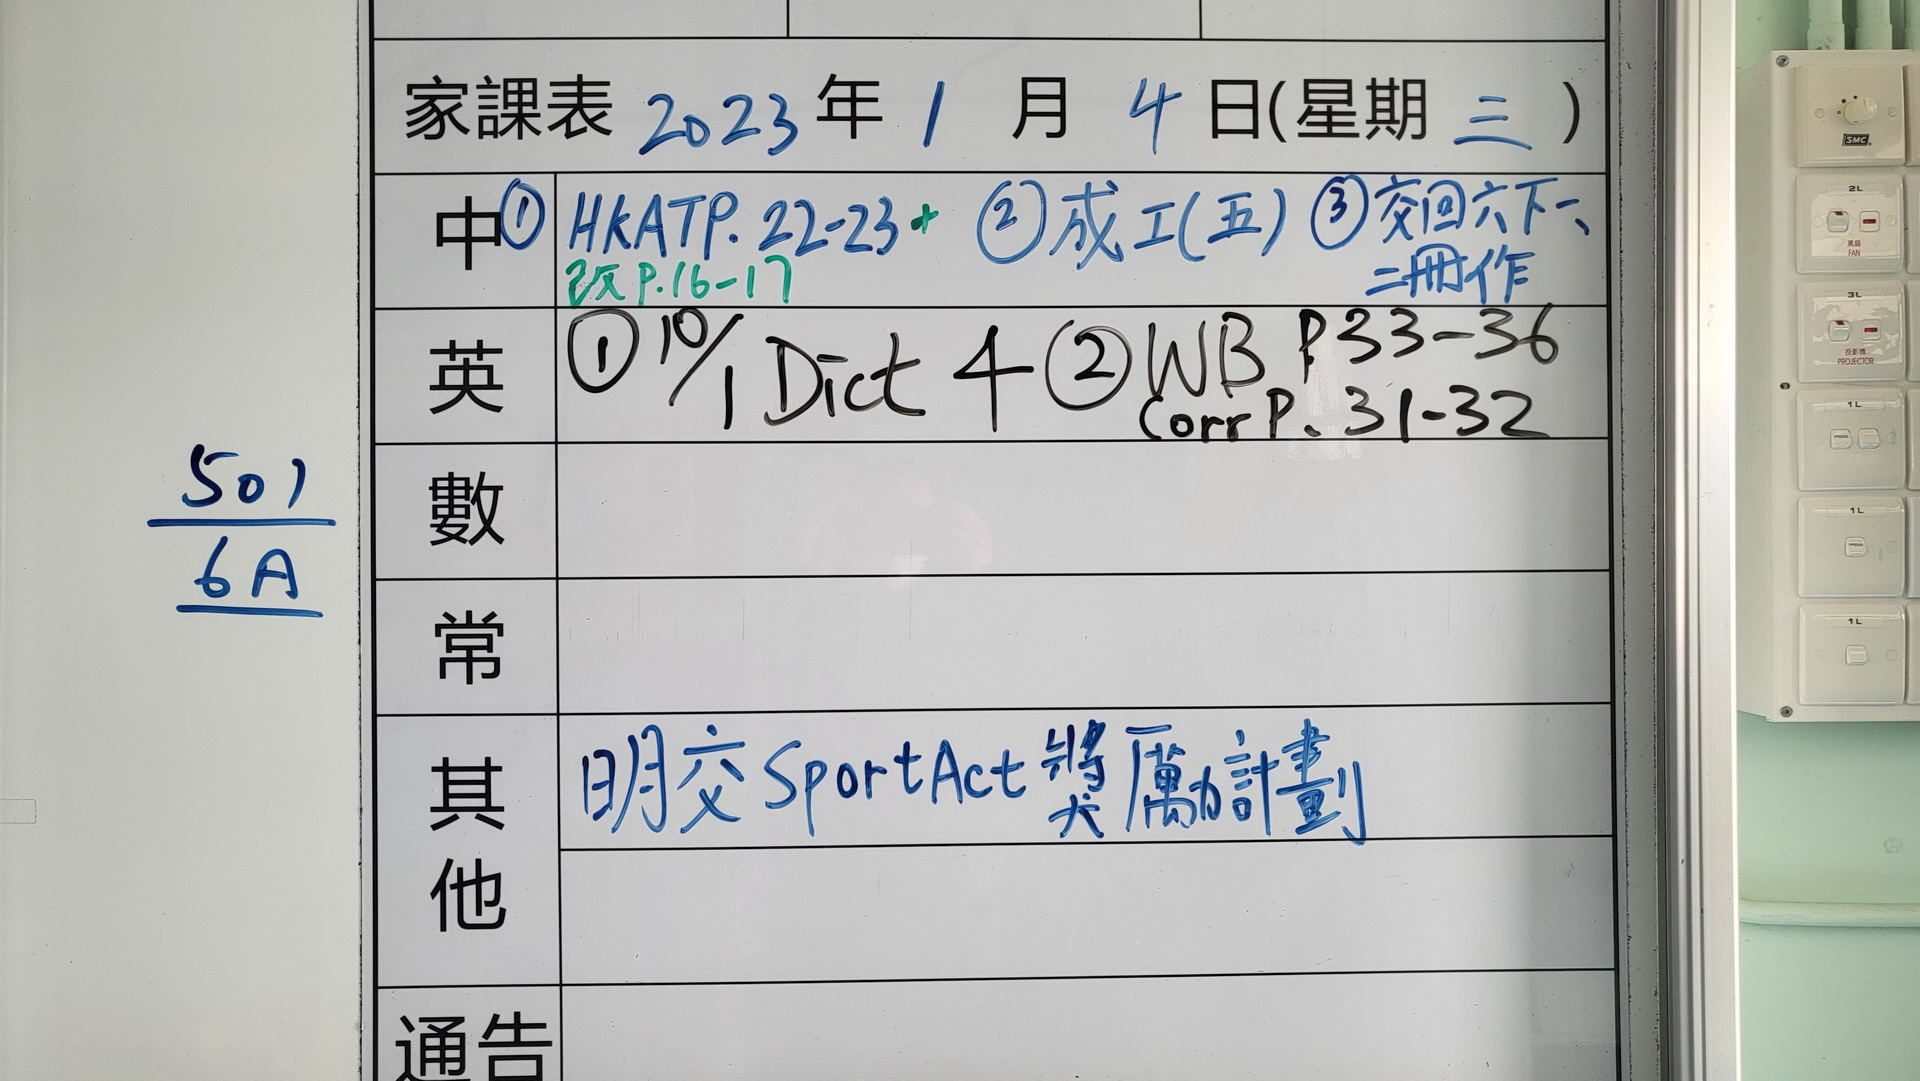 家課表 2023 年 1 月 4 日(星期 三 )
中 ① HKATP. 22-23+ ② 成工(五) ③ 交回六下一、
改 P.16-17
二冊作
英 ① 10/1 Dict 4 ② WB P.33-36
Corr P. 31-32
數
501
6A
常
其他
明交 SportAct 獎勵計劃
通告
SMC
2L
風扇
FAN
3L
投影機
PROJECTOR
1L
1L
1L